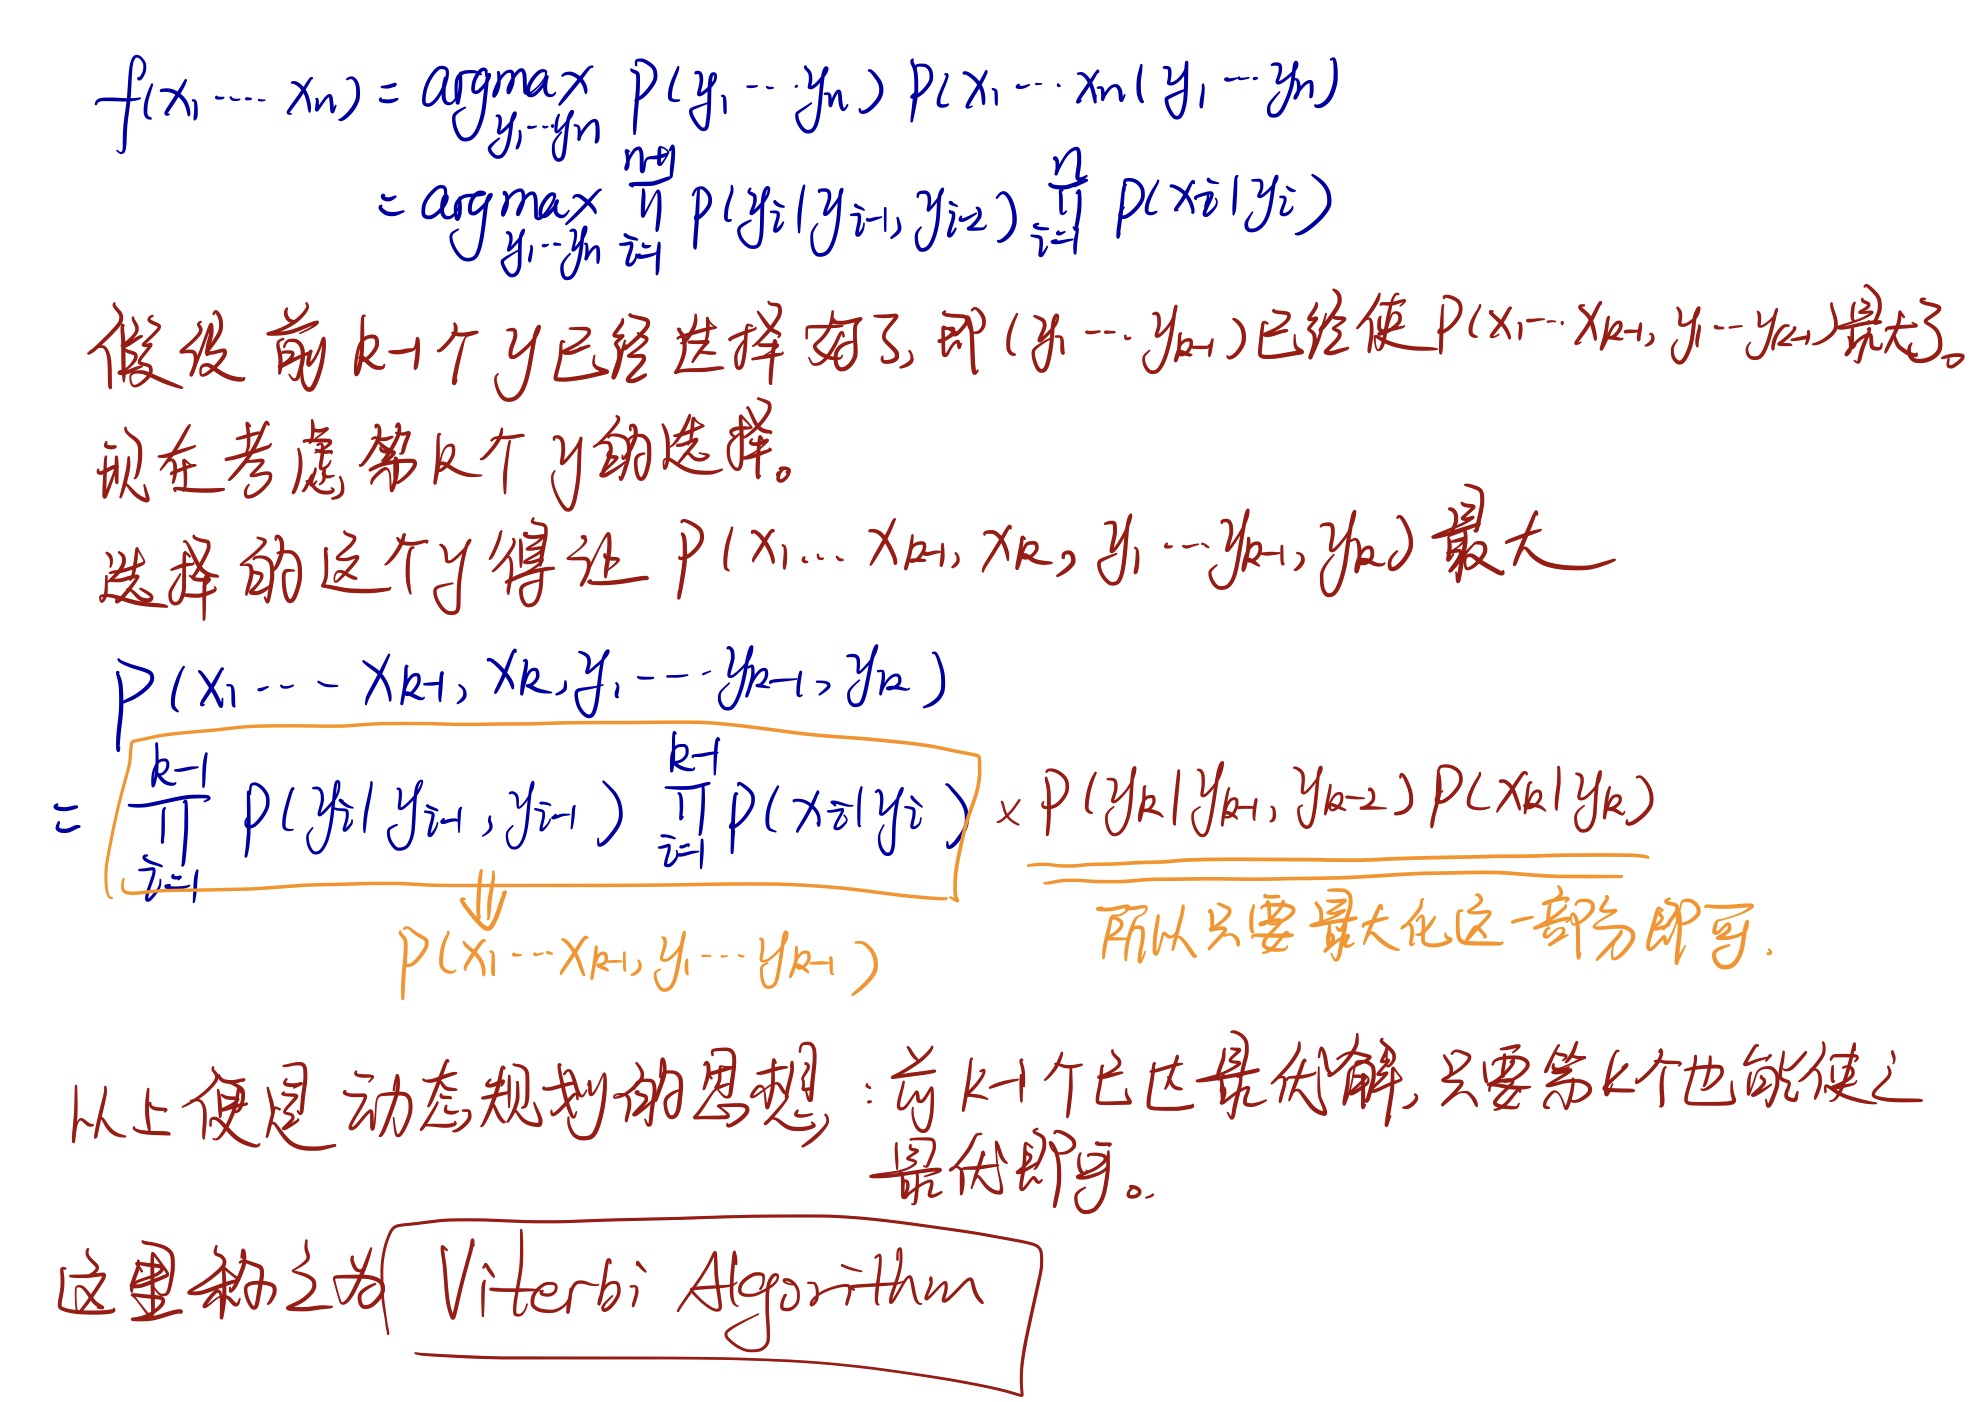 f(x₁ ···· xₙ) = argmax y₁···yₙ P(y₁ ··· yₙ) P(x₁ ··· xₙ | y₁ ··· yₙ)
= argmax y₁···yₙ ∏ i=1 n+1 P(yᵢ | yᵢ₋₁, yᵢ₋₂) ∏ i=1 n P(xᵢ | yᵢ)
假设前k-1个y已经选择好了,即(y₁ ··· yₖ₋₁)已经使P(x₁··· xₖ₋₁, y₁··· yₖ₋₁)最大了。
现在考虑第k个y的选择。
选择的这个y得让 P(x₁... xₖ₋₁, xₖ, y₁ ··· yₖ₋₁, yₖ) 最大
P(x₁ ···· xₖ₋₁, xₖ, y₁ ···· yₖ₋₁, yₖ)
= ∏ i=1 k-1 P(yᵢ | yᵢ₋₁, yᵢ₋₁) ∏ i=1 k-1 P(xᵢ | yᵢ) × P(yₖ | yₖ₋₁, yₖ₋₂) P(xₖ | yₖ)
⇓ 所以只要最大化这一部分即可.
P(x₁ ··· xₖ₋₁, y₁ ···· yₖ₋₁)
以上便是动态规划的思想:前k-1个已达最优解,只要第k个也能使之
最优即可。
这里称之为 Viterbi Algorithm